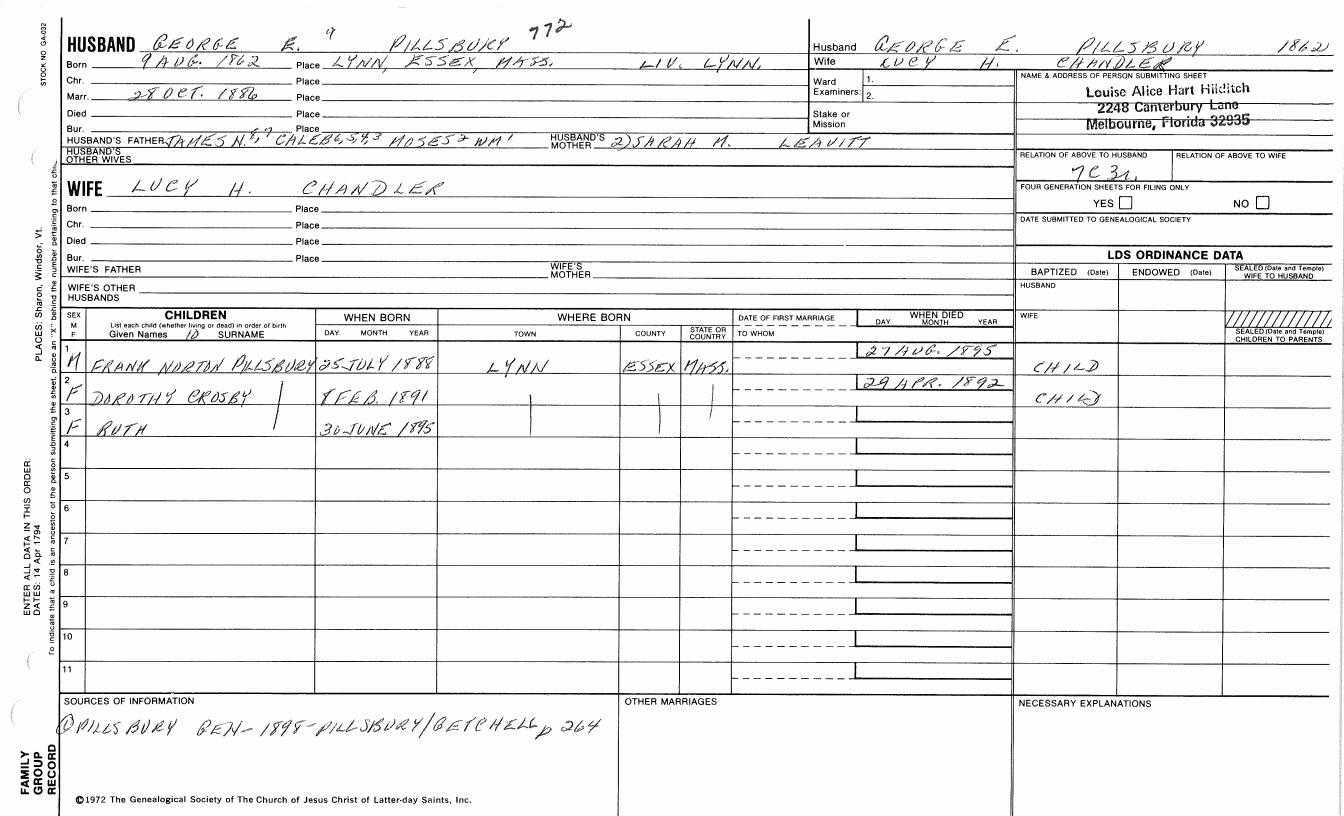 STOCK NO GA-032
HUSBAND GEORGE E. 9 PILLSBURY 772
Born 9 AUG. 1862 Place LYNN, ESSEX, MASS. LIV. LYNN.
Chr. Place
Marr. 28 OCT. 1886 Place
Died Place
Bur. Place
HUSBAND'S FATHER JAMES N. 8,7 CALEB 6,5,4,3 MOSES 2 WM 1 HUSBAND'S MOTHER 2) SARAH M. LEAVITT
HUSBAND'S OTHER WIVES
Husband GEORGE E. PILLSBURY 1862
Wife LUCY H. CHANDLER
Ward Examiners: 1.
2.
Stake or Mission
NAME & ADDRESS OF PERSON SUBMITTING SHEET
Louise Alice Hart Hilditch
2248 Canterbury Lane
Melbourne, Florida 32935
RELATION OF ABOVE TO HUSBAND RELATION OF ABOVE TO WIFE
7C 3r.
FOUR GENERATION SHEETS FOR FILING ONLY
YES NO
DATE SUBMITTED TO GENEALOGICAL SOCIETY
WIFE LUCY H. CHANDLER
Born Place
Chr. Place
Died Place
Bur. Place
WIFE'S FATHER WIFE'S MOTHER
WIFE'S OTHER HUSBANDS
LDS ORDINANCE DATA
BAPTIZED (Date) ENDOWED (Date) SEALED (Date and Temple) WIFE TO HUSBAND
HUSBAND
WIFE
SEALED (Date and Temple) CHILDREN TO PARENTS
SEX M F
CHILDREN
List each child (whether living or dead) in order of birth
Given Names 10 SURNAME
WHEN BORN
DAY MONTH YEAR
WHERE BORN
TOWN COUNTY STATE OR COUNTRY
DATE OF FIRST MARRIAGE
TO WHOM
WHEN DIED
DAY MONTH YEAR
1 M FRANK NORTON PILLSBURY 25 JULY 1888 LYNN ESSEX MASS. 27 AUG. 1895 CHILD
2 F DOROTHY CROSBY 8 FEB. 1891 29 APR. 1892 CHILD
3 F RUTH 30 JUNE 1895
4
5
6
7
8
9
10
11
SOURCES OF INFORMATION
① PILLSBURY GEN- 1898- PILLSBURY/GETCHELL p 264
OTHER MARRIAGES
NECESSARY EXPLANATIONS
©1972 The Genealogical Society of The Church of Jesus Christ of Latter-day Saints, Inc.
FAMILY
GROUP
RECORD
ENTER ALL DATA IN THIS ORDER:
DATES: 14 Apr 1794 PLACES: Sharon, Windsor, Vt.
To indicate that a child is an ancestor of the person submitting the sheet, place an "X" behind the number pertaining to that